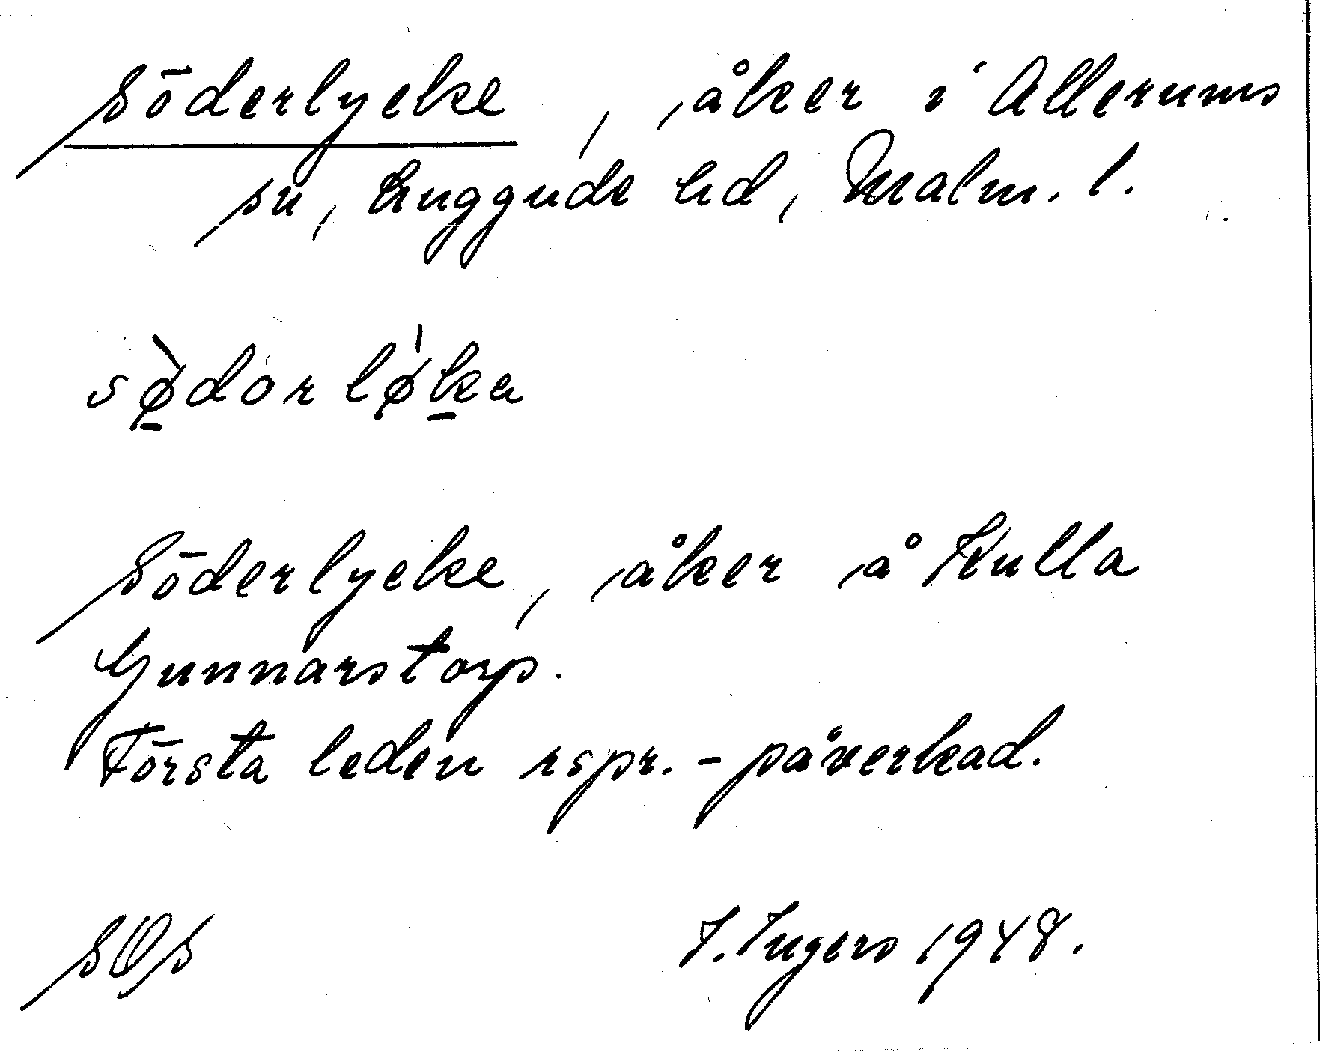 Söderlycke, åker i Allerums
sn, Luggude hd, Malm. l.
sø̀dərlø̍ka
Söderlycke, åker å Kulla
Gunnarstorp.
Första leden rspr.-påverkad.
SOS I. Ingers 1948.